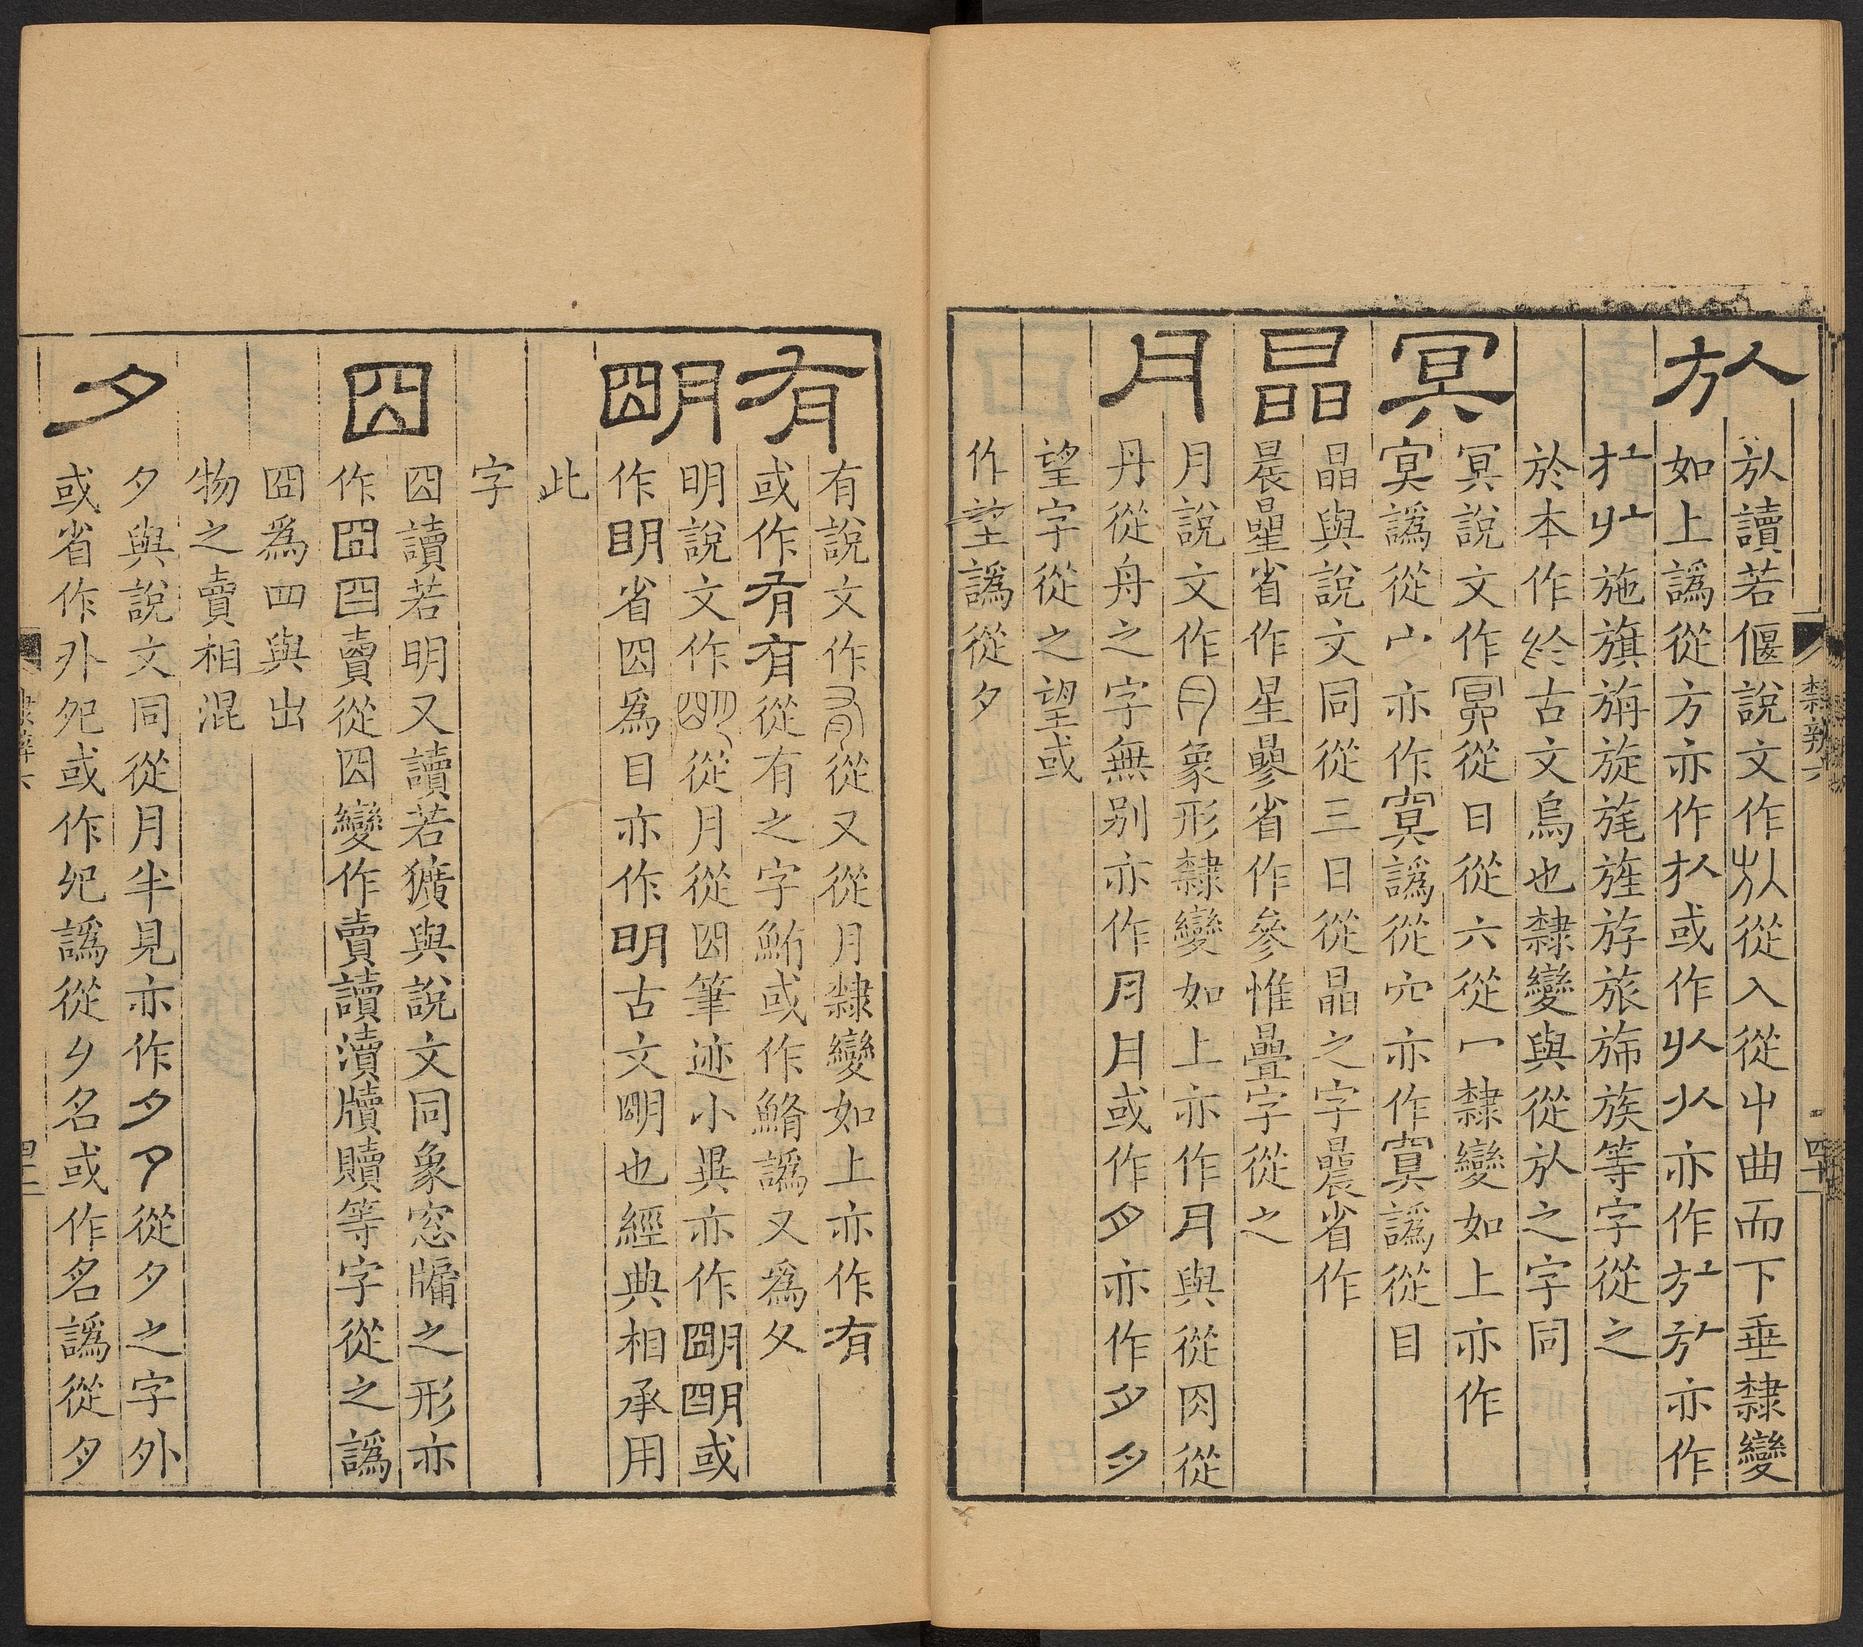 㫃
㫃讀若偃說文作㫃從入從屮曲而下垂隸變
如上譌從方亦作或作亦作亦作
施旗旃旋旄旌斿旅旆族等字從之
於本作古文烏也隸變與從㫃之字同
冥
冥說文作從日從六從冖隸變如上亦作
冥譌從宀亦作譌從穴亦作譌從目
晶
晶與說文同從三日從晶之字曟省作
晨曐省作星曑省作參惟疊字從之
月
月說文作象形隸變如上亦作月與從肉從
丹從舟之字無別亦作月或作亦作
望字從之望或
作譌從夕
隸辨六
四十
有
有說文作從又從月隸變如上亦作有
或作有有從有之字鮪或作譌又為父
朙
明說文作從月從囧筆迹小異亦作或
作眀省囧為目亦作明古文朙也經典相承用
此
字
囧
囧讀若明又讀若獷與說文同象窓牖之形亦
作賣從囧變作賣讀瀆牘贖等字從之譌
囧為四與出
物之賣相混
夕
夕與說文同從月半見亦作夕從夕之字外
或省作外夗或作譌從名或作譌從
隸辨六